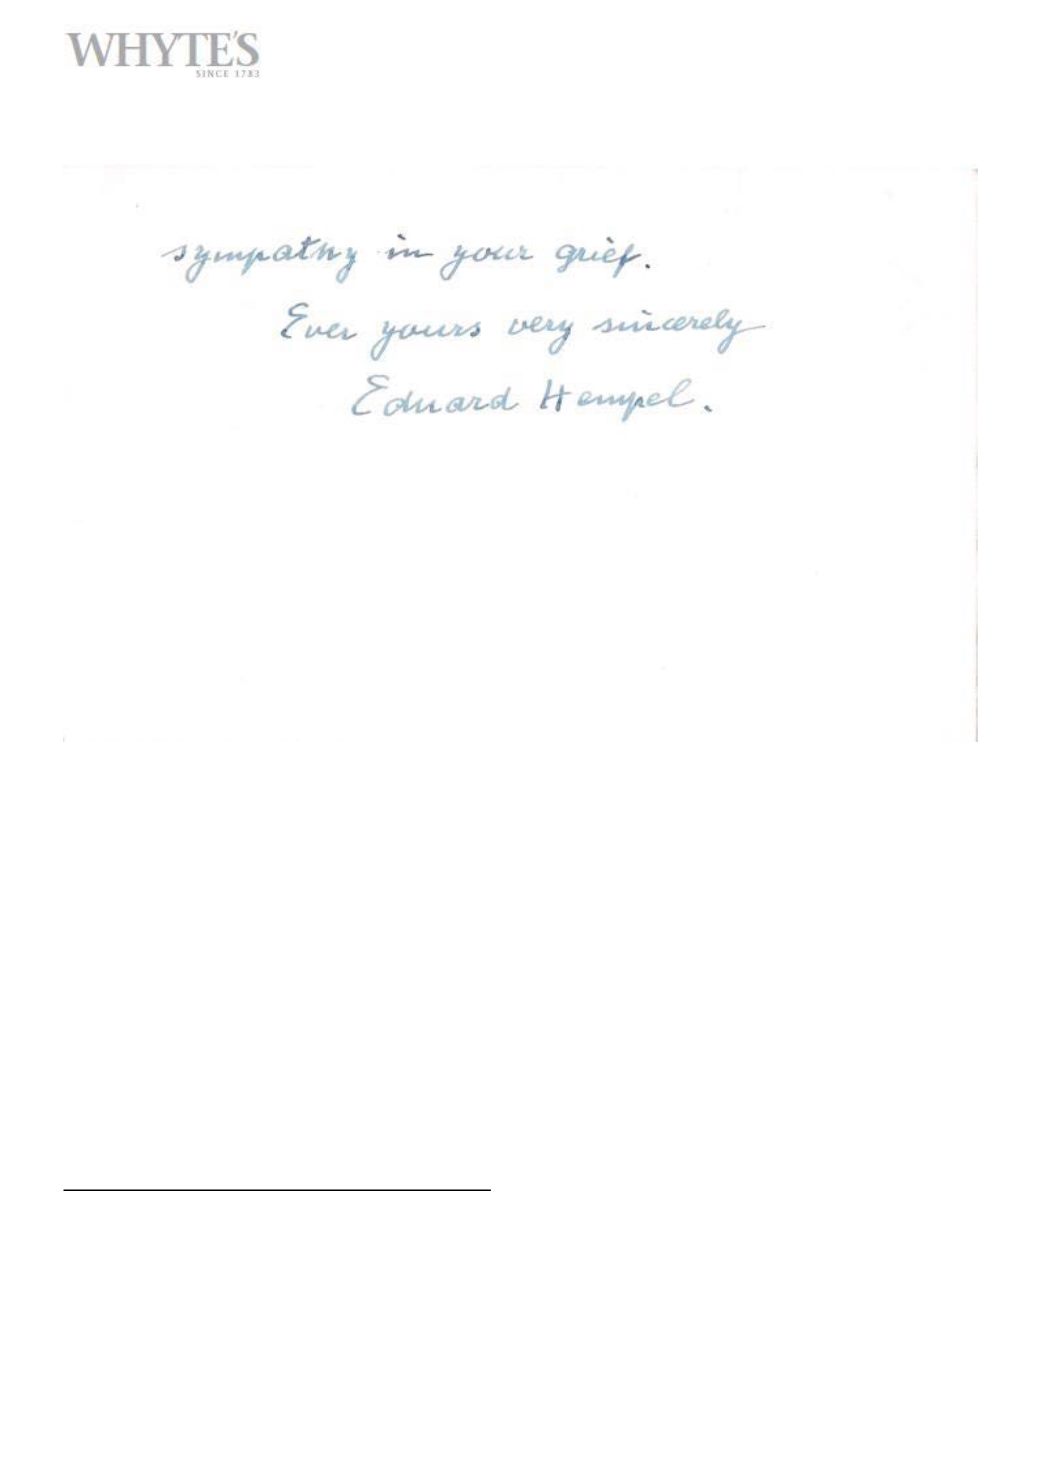 WHYTE'S
SINCE 1783
sympathy in your grief.
Ever yours very sincerely
Eduard Hempel.